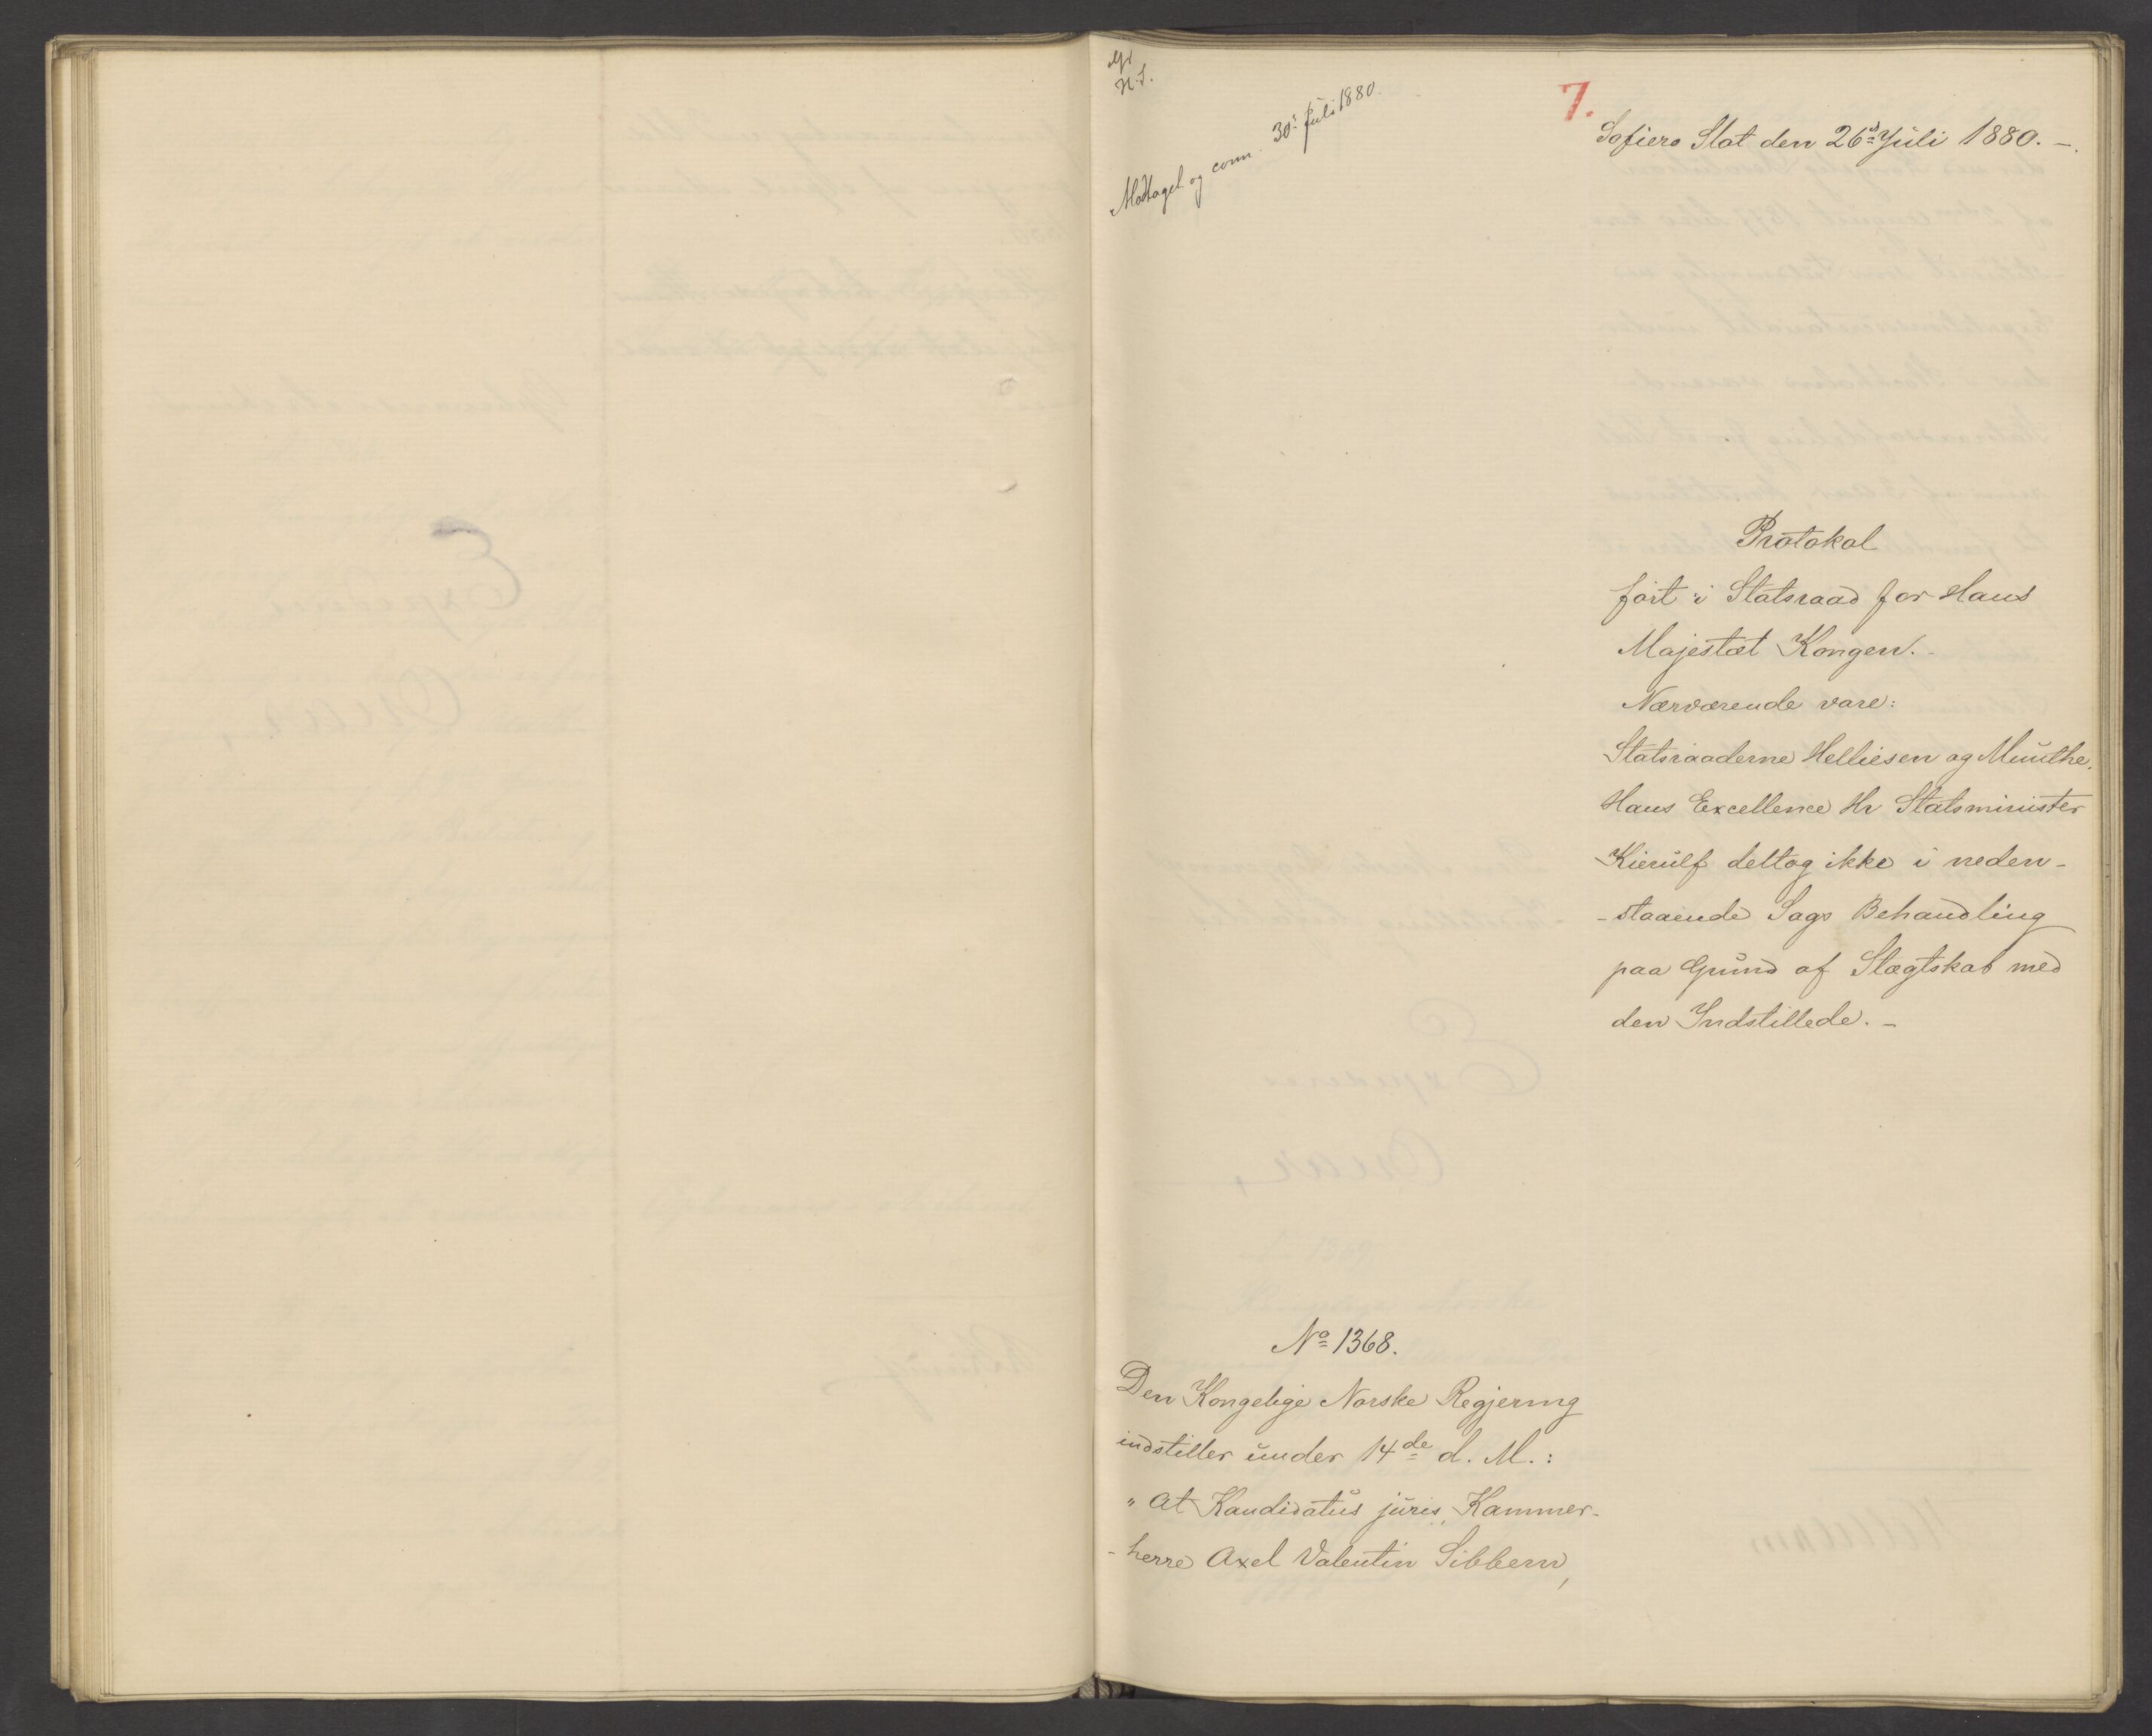 N. S.
Modtaget og comm. 30' Juli 1880.
7.
Sofiero Slot den 26' Juli 1880. -
Protokol
ført i Statsraad for Hans
Majestæt Kongen. -
Nærværende vare:
Statsraaderne Helliesen og Munthe.
Hans Excellence Hr Statsminister
Kierulf deltog ikke i neden-
-staaende Sags Behandling
paa Grund af Slægtskab med
den Indstillede. -
No 1368.
Den Kongelige Norske Regjering
indstiller under 14de d. M.:
" At Kandidatus juris, Kammer-
-herre Axel Valentin Sibbern,